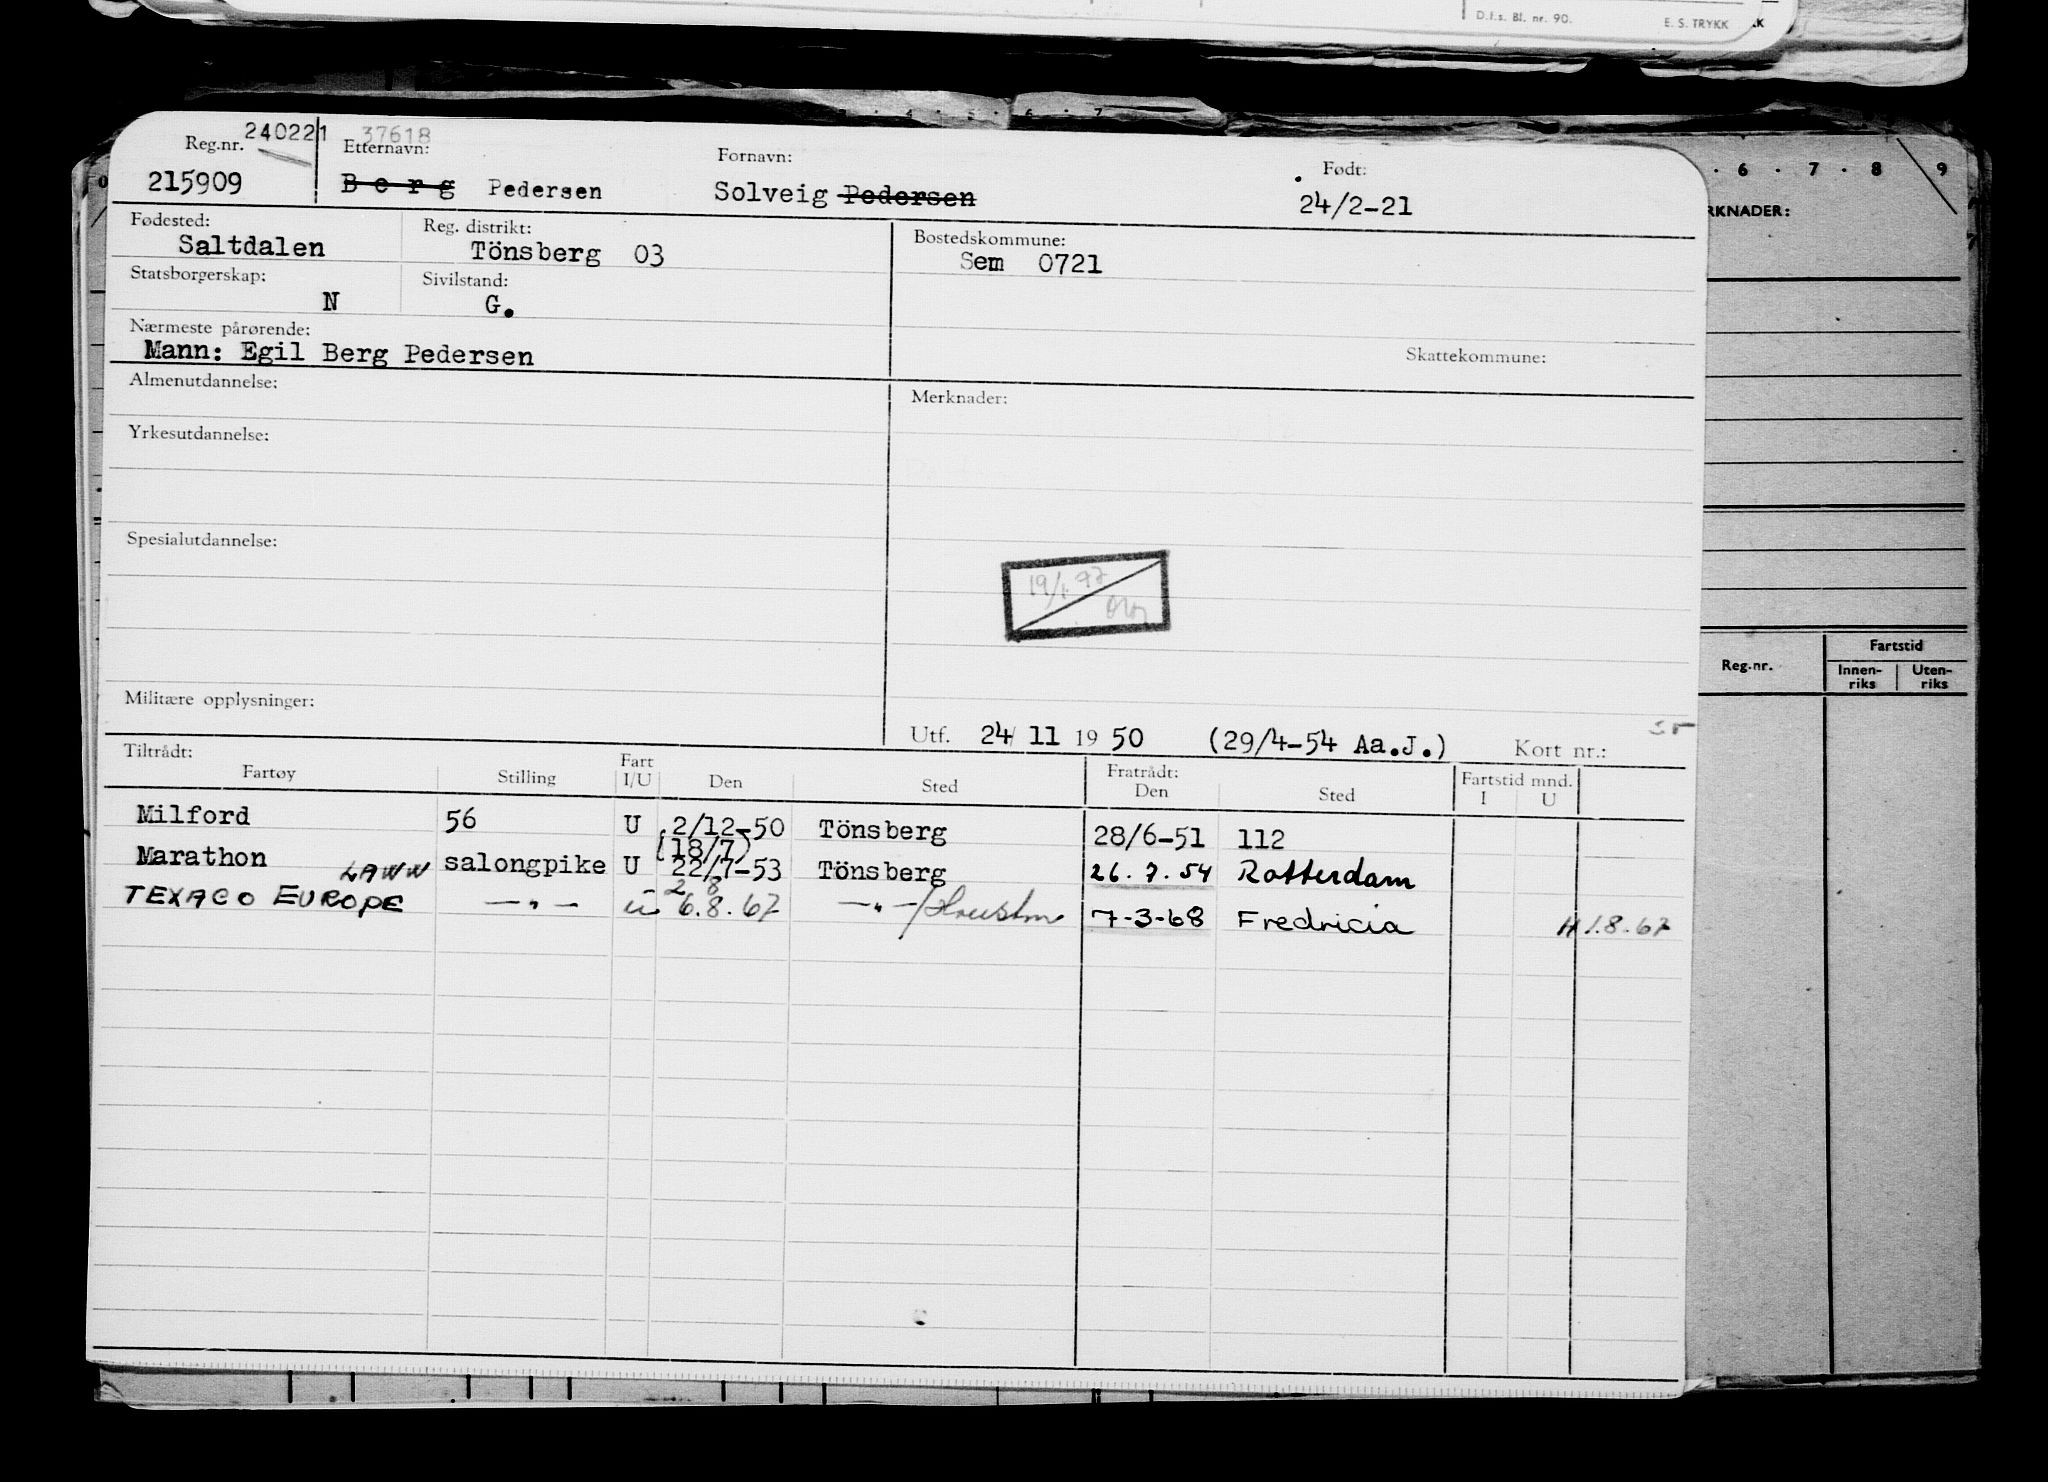 D.f.s. Bl. nr. 90. E. S. TRYKK
4 . 5 . 6 . 7
Reg.nr. 240221 37618
Etternavn: Fornavn: Født:
215909 Berg Pedersen Solveig Pedersen 24/2-21
Fødested: Reg. distrikt: Bostedskommune:
Saltdalen Tönsberg 03 Sem 0721
Statsborgerskap: Sivilstand:
N G.
Nærmeste pårørende:
Mann: Egil Berg Pedersen Skattekommune:
Almenutdannelse: Merknader:
Yrkesutdannelse:
Spesialutdannelse:
19/1 97
Militære opplysninger:
Utf. 24/ 11 19 50 (29/4-54 Aa.J.) Kort nr.:
Tiltrådt: Fratrådt: Fartstid mnd.
Fartøy Stilling Fart I/U Den Sted Den Sted I U
Milford 56 U 2/12-50 Tönsberg 28/6-51 112
(18/7)
Marathon salongpike U 22/7-53 Tönsberg 26.7.54 Rotterdam
LAWW 2 8
TEXACO EUROPE —"— u 6.8.67 —"—/Houston 7-3-68 Fredricia H 1.8.67
. 6 . 7 . 8 9
RKNADER:
Reg.nr. Fartstid
Innen-riks Uten-riks